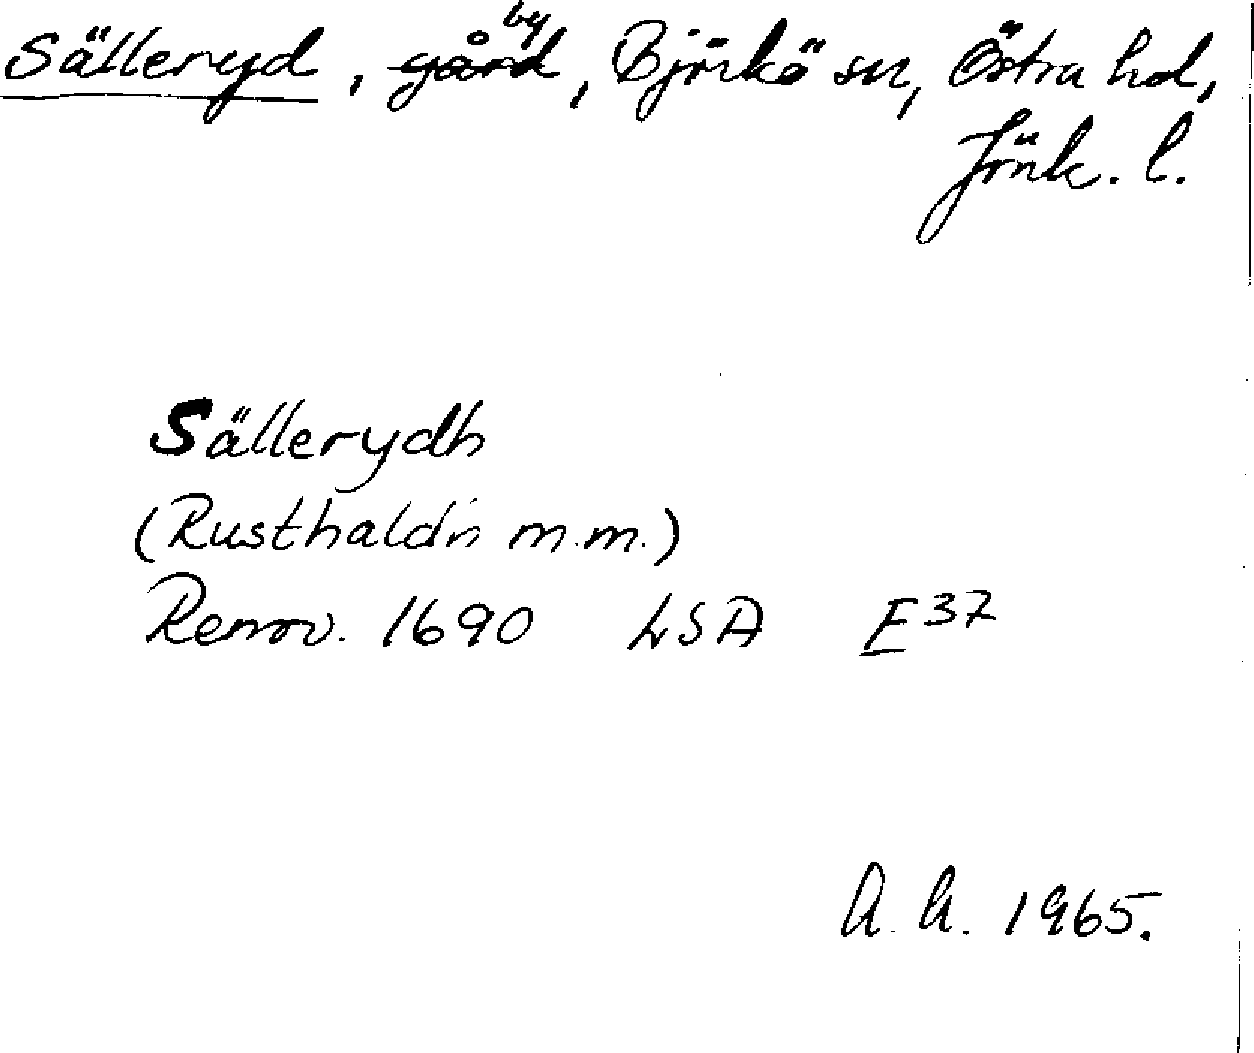 Sälleryd, gård by, Björkö sn, Östra hd,
Jönk. l.
Sällerydh
(Rusthåldn m.m.)
Renov. 1690 LSA E37
A. A. 1965.